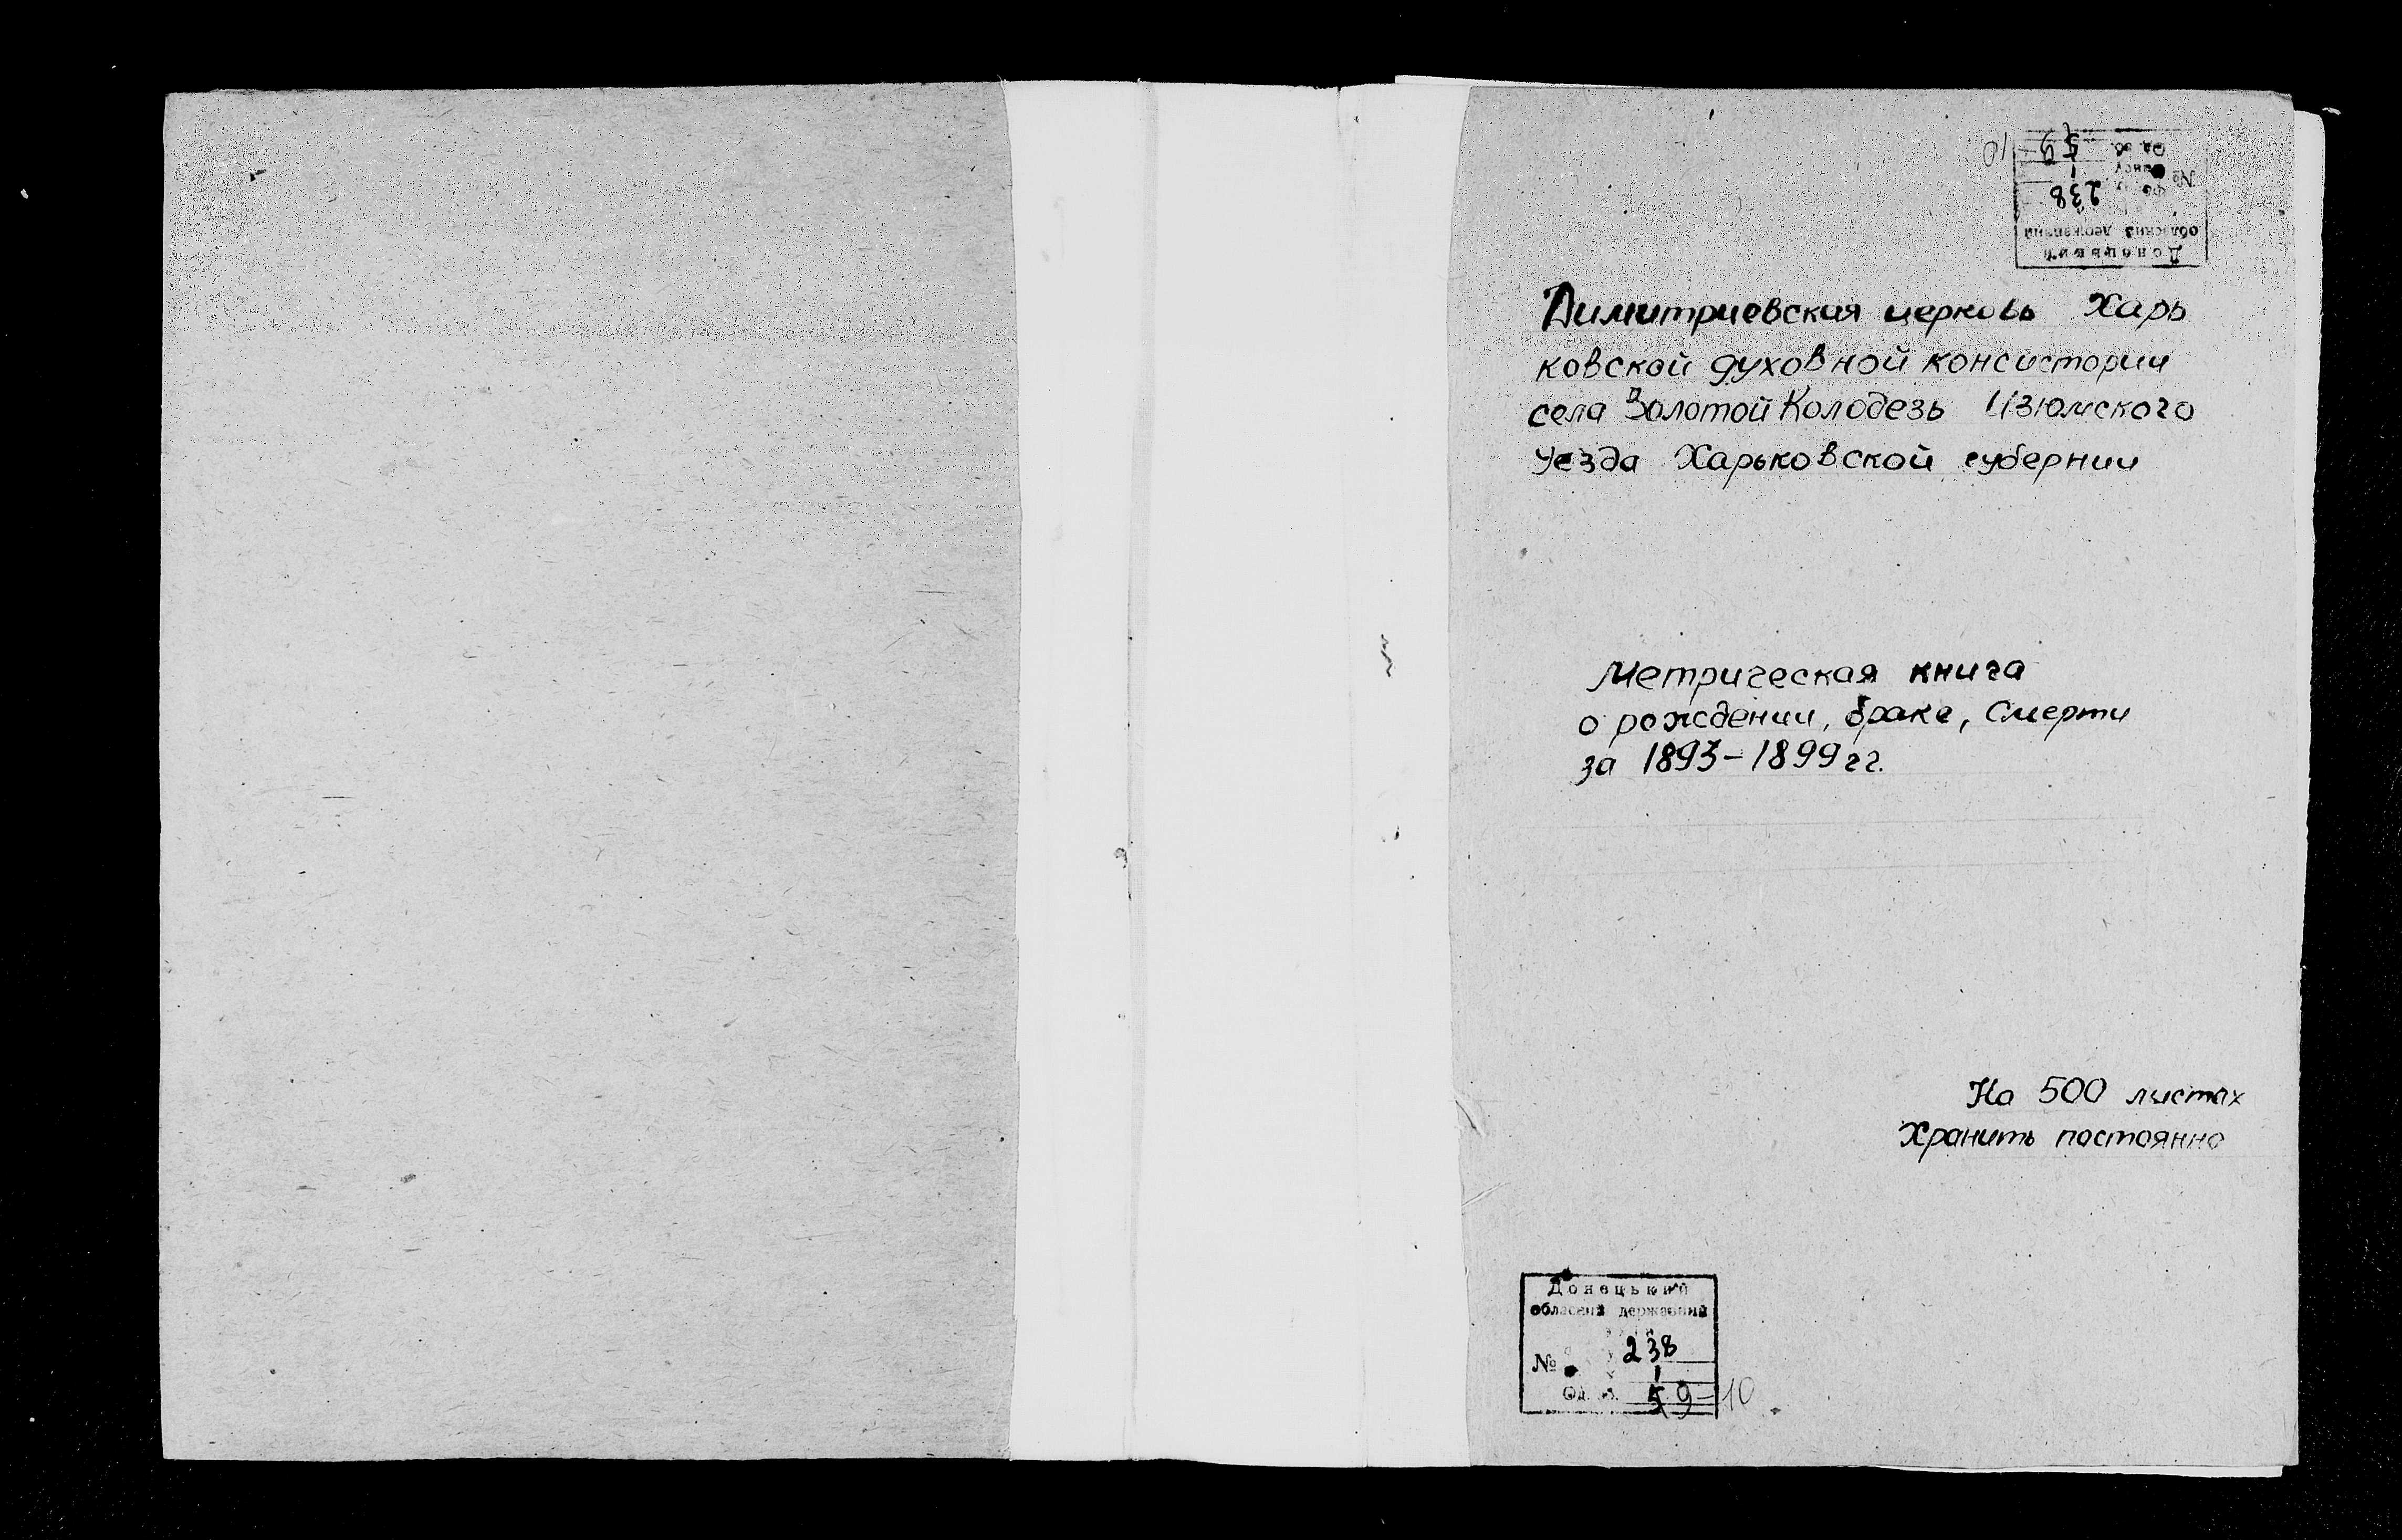 Димитриевская церковь Харь
ковской духовной консистории
села Золотой Колодезь Изюмского
уезда Харьковской губернии
Метрическая книга
о рождении, браке, смерти
за 1893-1899 гг.
На 500 листах
Хранить постоянно
Донецький
обласний державний
№ 238
1
Од. зб. 59-10
Донецький
обласний державний
№ 238
1
Од. зб. 59-10